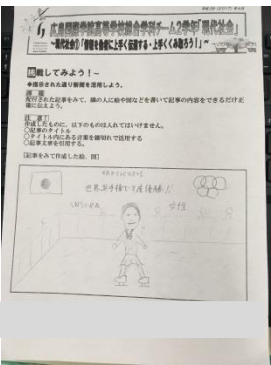 広島国際学院高等学校総合学科チーム2学年「現代社会」
～現代社会①「情報を他者に上手く伝達する・上手くくみ取ろう！」～
挑戦してみよう！～
◆指示された通り新聞を活用しよう。
課題
配付された記事をみて、隣の人に絵や図などを書いて記事の内容をできるだけ正確に伝えよう。
注意！
作成したものに、以下のものは入れてはいけません。
○記事のタイトル
○タイトル内にある言葉を細切れで活用する
○記事文章を引用する。
[記事をみて作成した絵、図]
世界選手権で
優勝！
女性